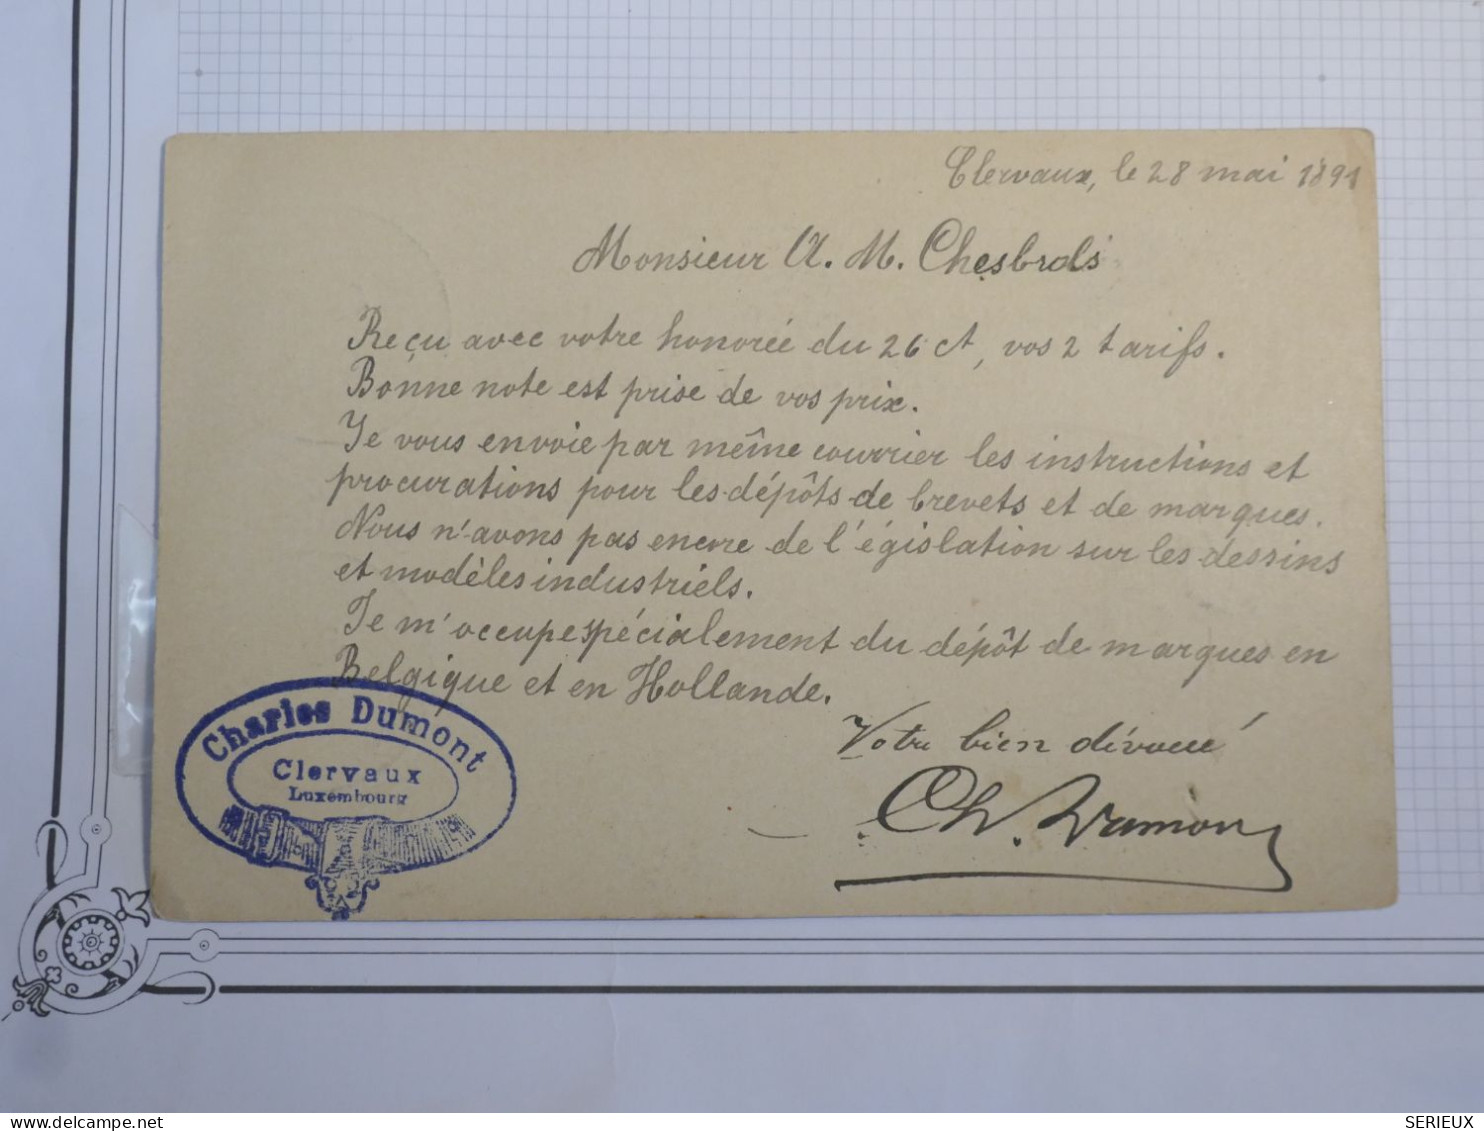 Clervaux, le 28 mai 1891
Monsieur A. M. Chesbrols
Reçu avec votre honorée du 26 ct, vos 2 tarifs.
Bonne note est prise de vos prix.
Je vous envoie par même courrier les instructions et
procurations pour les dépôts de brevets et de marques.
Nous n'avons pas encore de l'égislation sur les dessins
et modèles industriels.
Je m'occupe spécialement du dépôt de marques en
Belgique et en Hollande.
Votre bien dévoué
Ch. Dumont
Charles Dumont
Clervaux
Luxembourg
SERIEUX